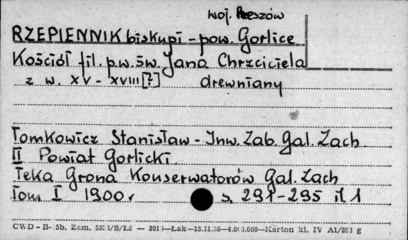 woj. Rzeszów
RZEPIENNIK biskupi - pow. Gorlice
Kościół fil. p.w. św. Jana Chrzciciela
z w. XV - XVIII [?] drewniany
Tomkowicz Stanisław - Inw. Zab. Gal. Zach
II Powiat Gorlicki
Teka Grona Konserwatorów Gal. Zach
tom I 1900 r s. 291-295 il 1
CWD - B- 5b. Zam. -Łak-15.11.56- -Karton kl. IV A1/200 g